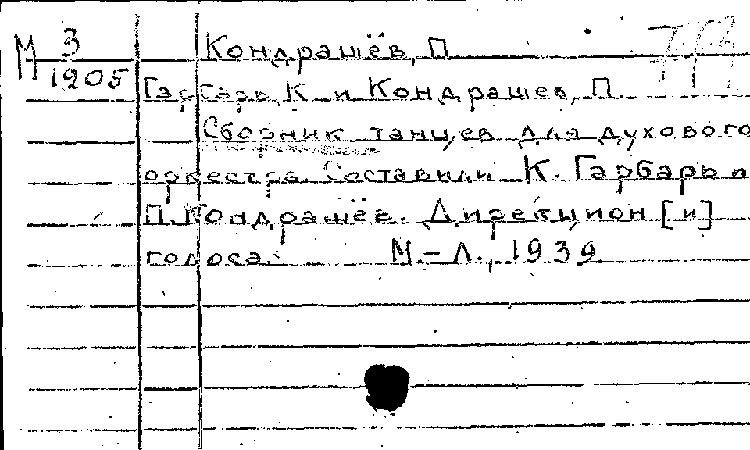 М 3
1905
Кондрашёв, П
Гарбарь, К. и Кондрашев, П.
Сборник танцев для духового
оркестра. Составили К. Гарбарь и
П. Кондрашёв. Дирекцион [и]
голоса. М.-Л., 1939